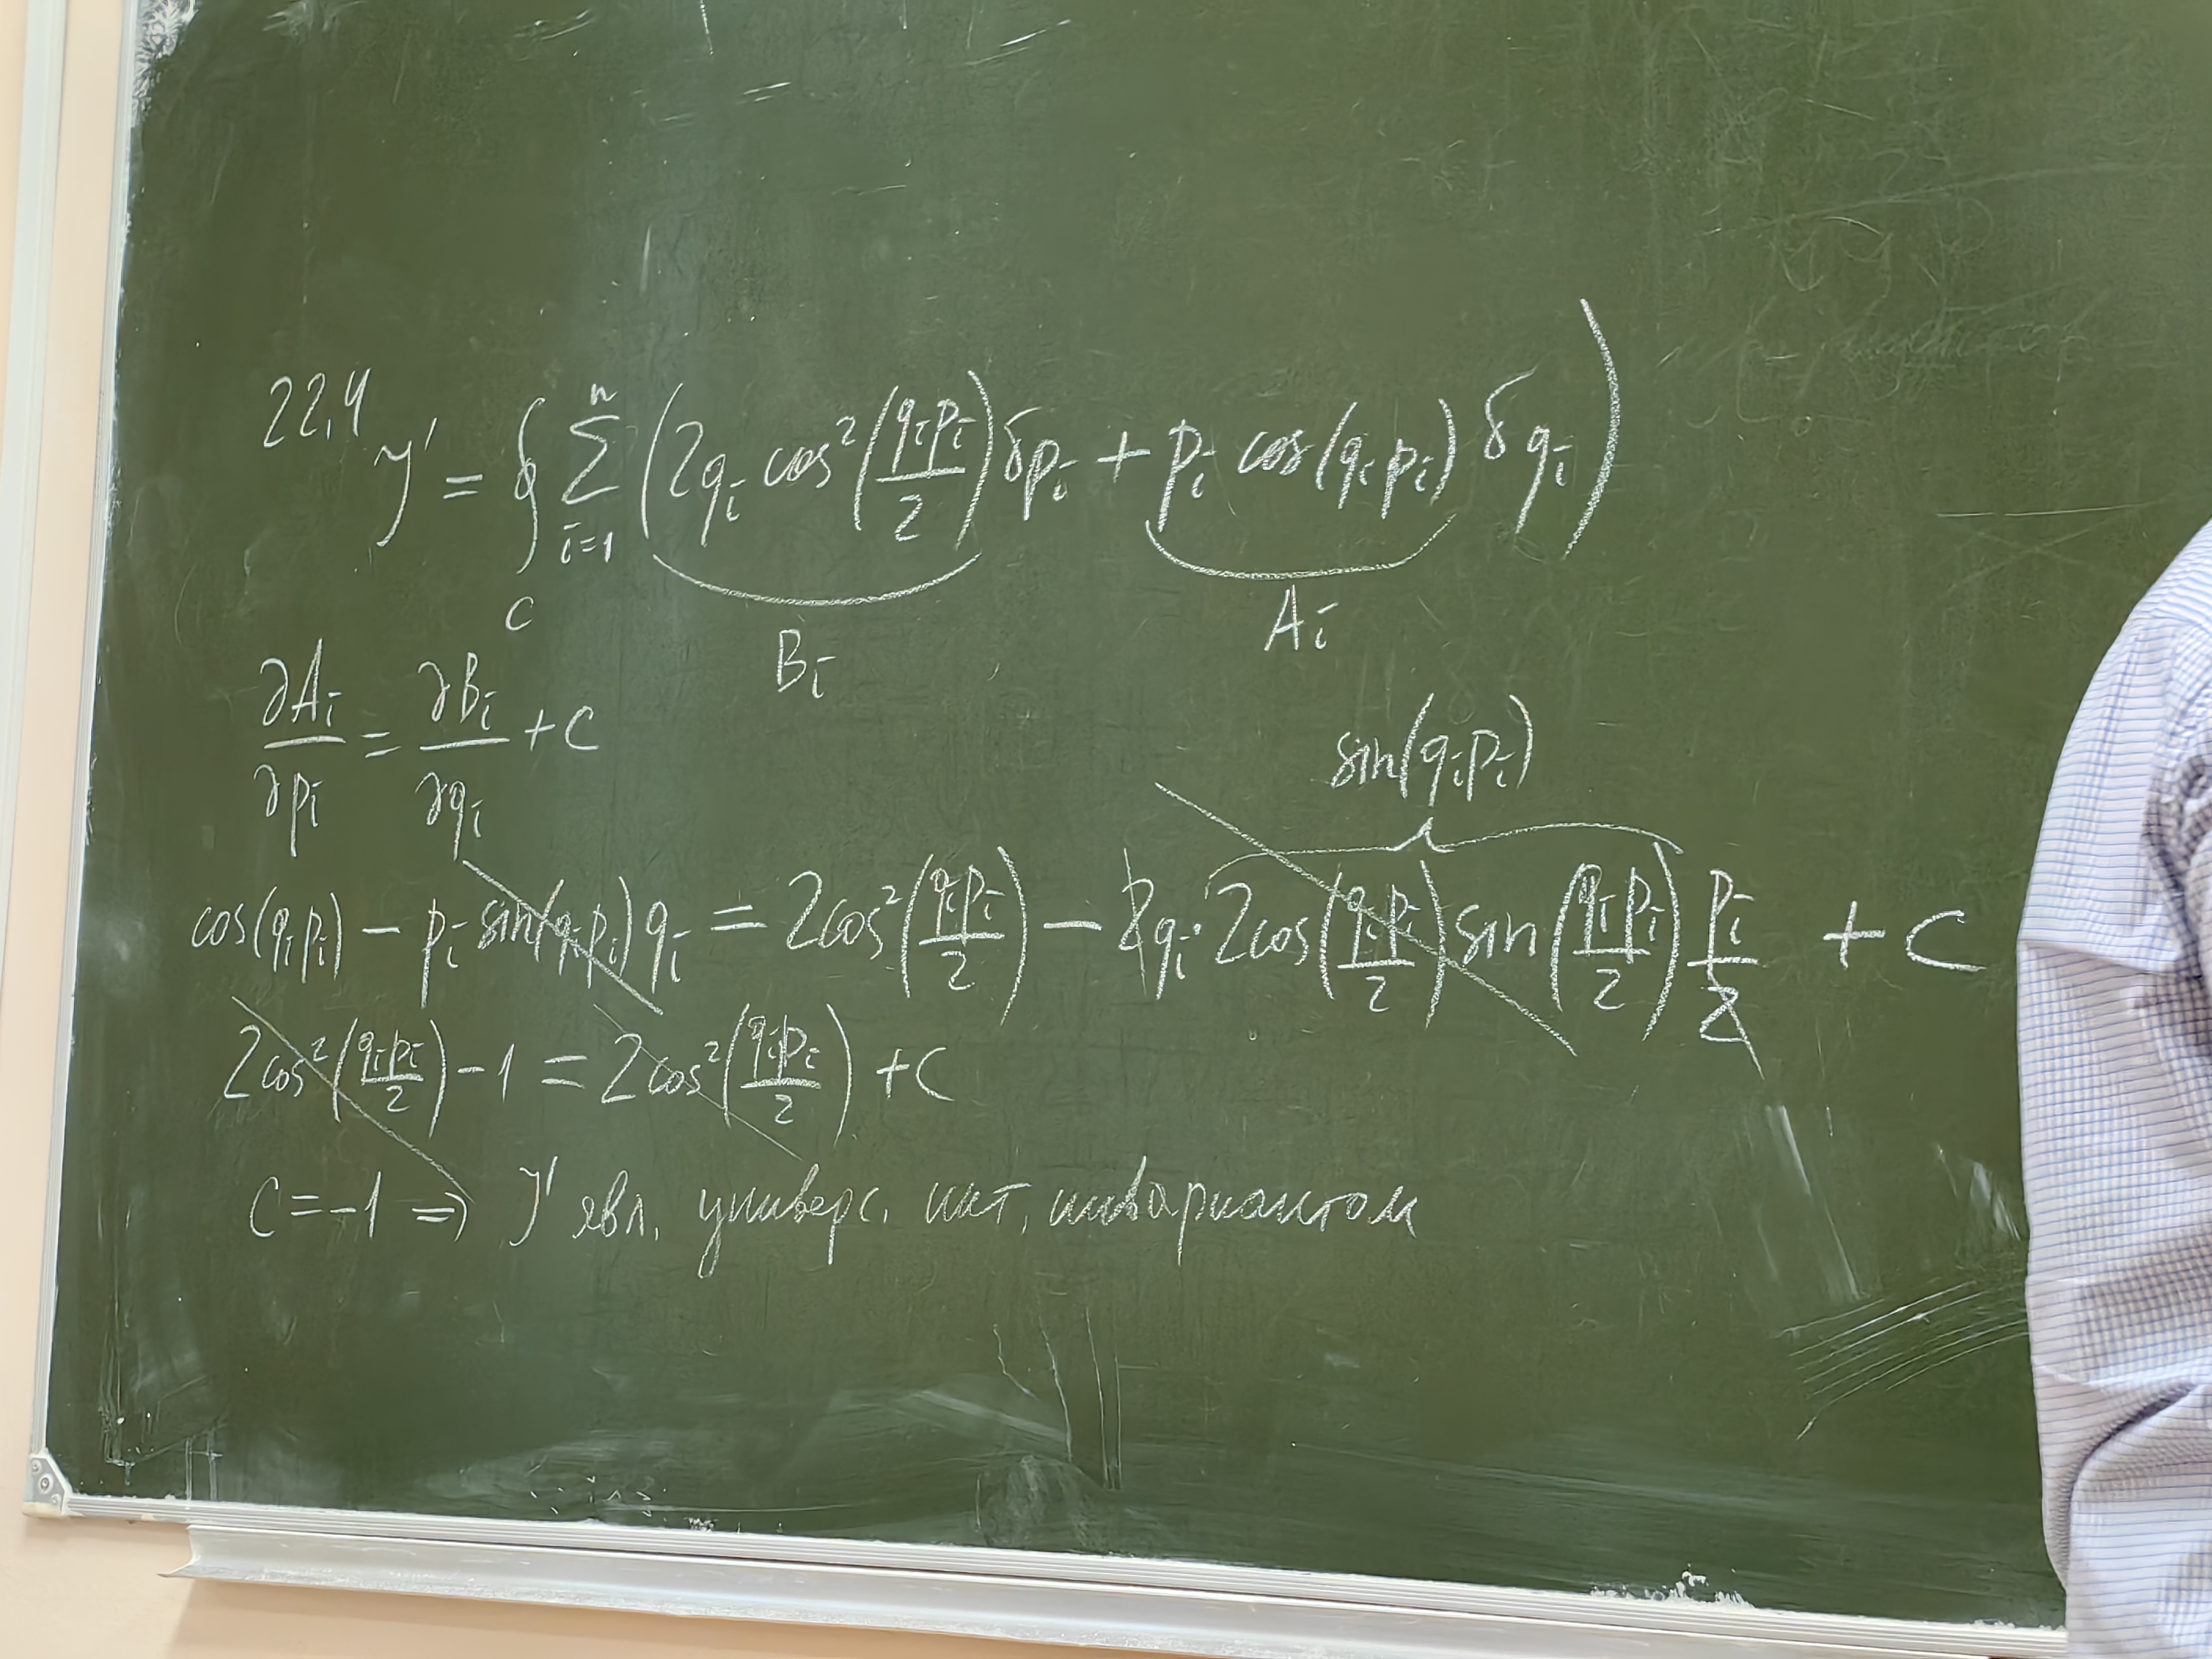 22.4 J' = ∮_C Σ_{i=1}^n (2q_i cos²(q_i p_i / 2) δp_i + p_i cos(q_i p_i) δq_i)
B_i A_i
∂A_i/∂p_i = ∂B_i/∂q_i + C
sin(q_i p_i)
cos(q_i p_i) − p_i sin(q_i p_i) q_i = 2cos²(q_i p_i / 2) − 2q_i · 2cos(q_i p_i / 2) sin(q_i p_i / 2) p_i/2 + C
2cos²(q_i p_i / 2) − 1 = 2cos²(q_i p_i / 2) + C
C = −1 ⇒ J' явл. универс. инт. инвариантом